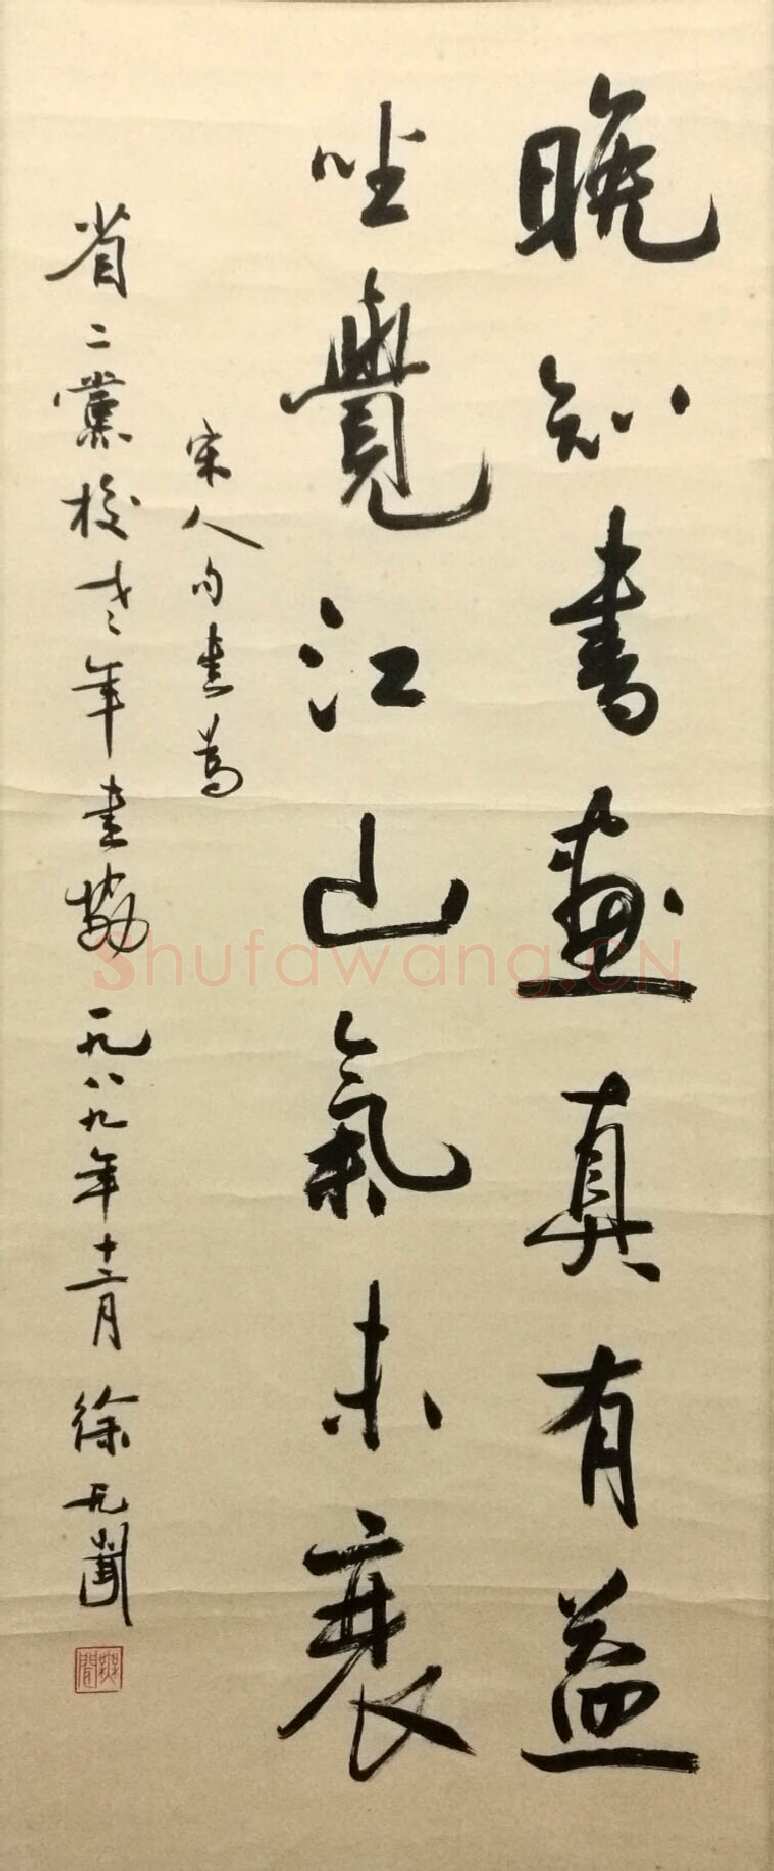 晚知書畫真有益
坐覺江山氣未衰
宋人句書為
省二黨校老年書協 一九八九年十二月 徐无聞
Shufawang.CN